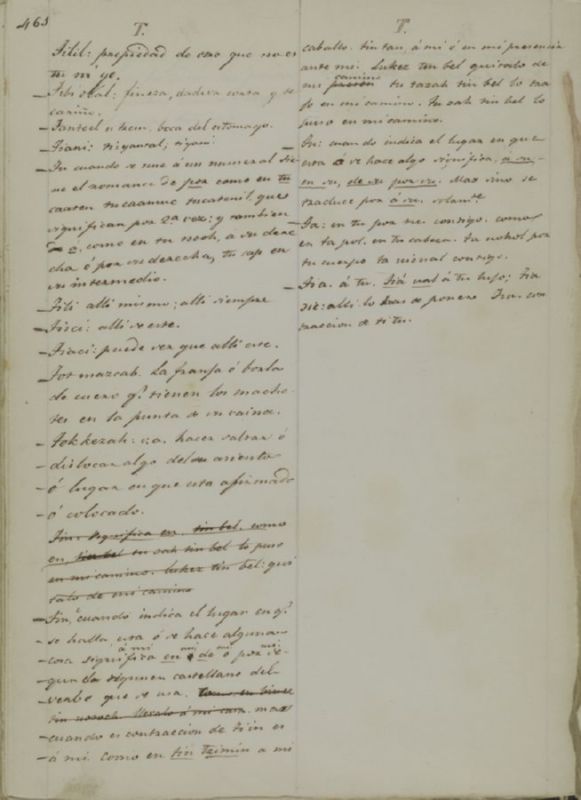 463
T.
Tilil: propiedad de una que no es
tu m ye.
Tibi otal: fineza, dadiva corta y de
cariño.
boca del estomago.
Tu cuando se une á un numeral tie
ne el romance de por como en tu
caaten tucaanme tucatenil que
significan por 2ª vez: y tambien
como en tu nooh, á su dere
cha ó por su derecha, tu cap en
su intermedio.
Tili alli mismo; alli siempre
Tisci: alli se este.
Tiaci: puede ser que alli este.
Tot mazcab. La franja ó borla
de cuero q.e tienen los mache-
tes en la punta de su vaina.
Tok kezah: v.a. hacer saltar ó
dislocar algo del su asiento
ó lugar en que esta afirmado
ó colocado.
Tin: significa en. tin bel. como
en, tin bel tu zah tin bel lo puso
en mi camino. Lukez tin bel: qui
talo de mi camino
Tin, cuando indica el lugar en q.e
se halla, esta ó se hace alguna
á mi mi mi mi
cosa significa en ó de ó por se-
gun la régimen castellano del
verbo que se usa.
tin Llevalo á mi casa. mas
cuando es contraccion de ti in es
á mi. Como en tin tzimin a mi
T.
caballo. tin tan, á mi ó en mi presencia
ante mi. Lukez tin bel quitado de
camino
mi tu tazah tin bel lo tra
jo en mi camino. tu zah tin bel lo
puso en mi camino.
Tu: cuando indica el lugar en que
esta ó se hace algo significa, a su
en su, de su por su. Mas sino se
traduce por á su solam.te
Ta: en tu por tu. contigo. como
en ta pol, en tu cabeza. ta uokol por
tu cuerpo ta uicnal contigo.
Tia. á tu. Tiá ual á tu hijo; Tia
alli lo has de poner. Tia. con
traccion de ti tu.